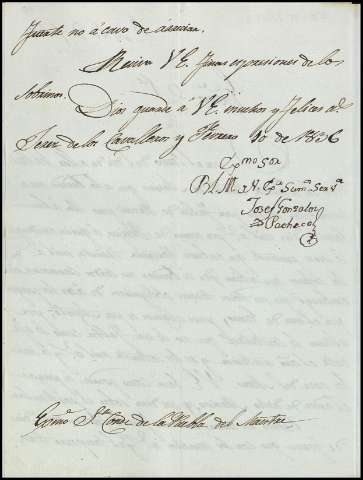 fuente no á cavo de arruinar.
Reciva V.E. finas expresiones de los
sobrinos. Dios guarde á V.E. muchos y felices a.s
Jerez de los Cavalleros y Febrero 10 de 1836
Exmo Sor
B L M á V. Exª Sumº Servª
Josef Gonzalez
Pacheco
Exmo. Sr. Conde de la Puebla del Maestre